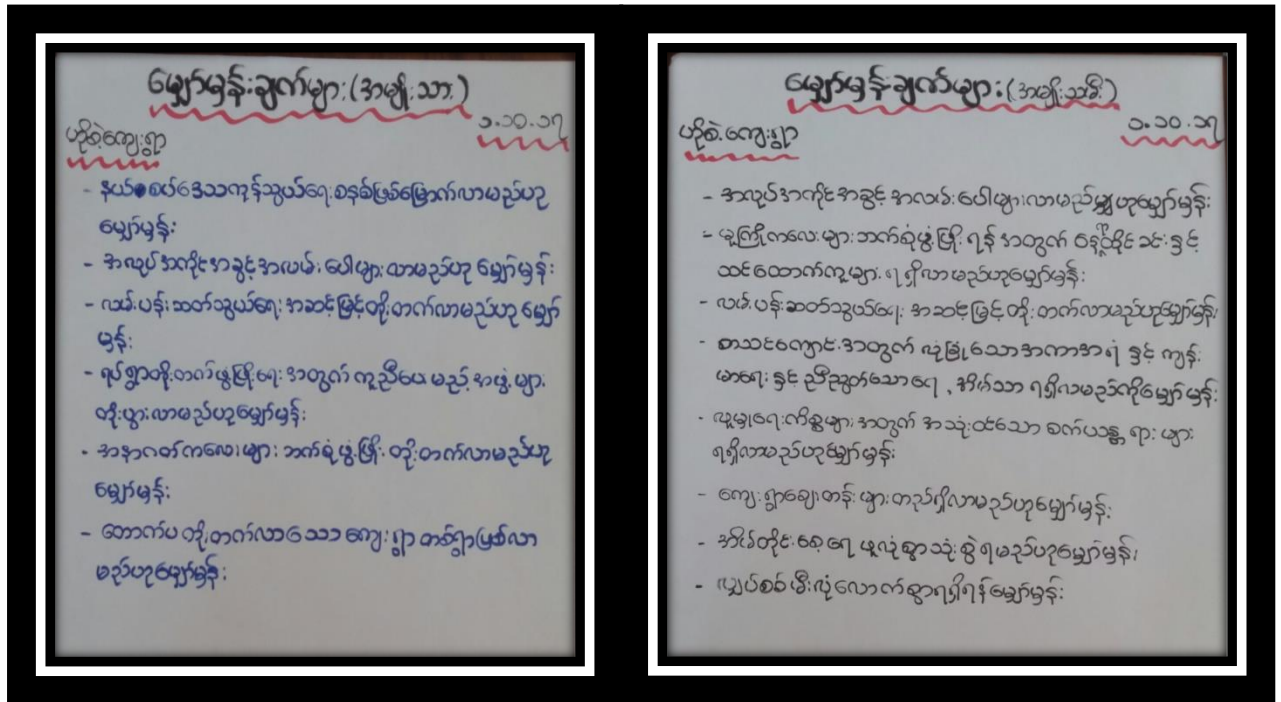 မျှော်မှန်းချက်များ(အမျိုးသား)
၁.၁၀.၁၇
ဟိုစဲ့ကျေးရွာ
- နယ်စပ်ဒေသကုန်သွယ်ရေးစနစ်ဖြစ်မြောက်လာမည်ဟု
မျှော်မှန်း
- အလုပ်အကိုင်အခွင့်အလမ်းပေါများလာမည်ဟု မျှော်မှန်း
- လမ်းပန်းဆတ်သွယ်ရေးအဆင့်မြင့်တိုးတက်လာမည်ဟု မျှော်
မှန်း
- ရပ်ရွာတိုးတက်ဖွံ့ဖြိုးရေးအတွက် ကူညီပေးမည့်အဖွဲ့များ
တိုးပွားလာမည်ဟုမျှော်မှန်း
- အနာဂတ်ကလေးများဘက်စုံဖွံ့ဖြိုးတိုးတက်လာမည်ဟု
မျှော်မှန်း
- တောက်ပတိုးတက်လာသောကျေးရွာတစ်ရွာဖြစ်လာ
မည်ဟုမျှော်မှန်း
မျှော်မှန်းချက်များ(အမျိုးသမီး)
ဟိုစဲ့ကျေးရွာ
၁.၁၀.၁၇
- အလုပ်အကိုင်အခွင့်အလမ်းပေါများလာမည်မျှဟုမျှော်မှန်း
- မူကြိုကလေးများဘက်စုံဖွံ့ဖြိုးရန်အတွက် နေ့ထိုင်ခင်းနှင့်
ထင်ထောက်ကူများရရှိလာမည်ဟုမျှော်မှန်း
- လမ်းပန်းဆတ်သွယ်ရေးအဆင့်မြင့်တိုးတက်လာမည်ဟုမျှော်မှန်း
- စာသင်ကျောင်းအတွက် လုံခြုံသောအကာအရံ နှင့် ကျန်း
မာရေးနှင့်ညီညွတ်သောရေ၊ အိမ်သာ ရရှိလာမည်ကိုမျှော်မှန်း
- လူမှုရေးကိစ္စများအတွက် အသုံးဝင်သော စက်ယန္တရားများ
ရရှိလာမည်ဟုမျှော်မှန်း
- ကျေးရွာချေးတန်းများတည်ရှိလာမည်ဟုမျှော်မှန်း
- အိမ်တိုင်းစေ့ရေဖူလုံစွာသုံးစွဲရမည်ဟုမျှော်မှန်း
- လျှပ်စစ်မီးလုံလောက်စွာရရှိရန်မျှော်မှန်း